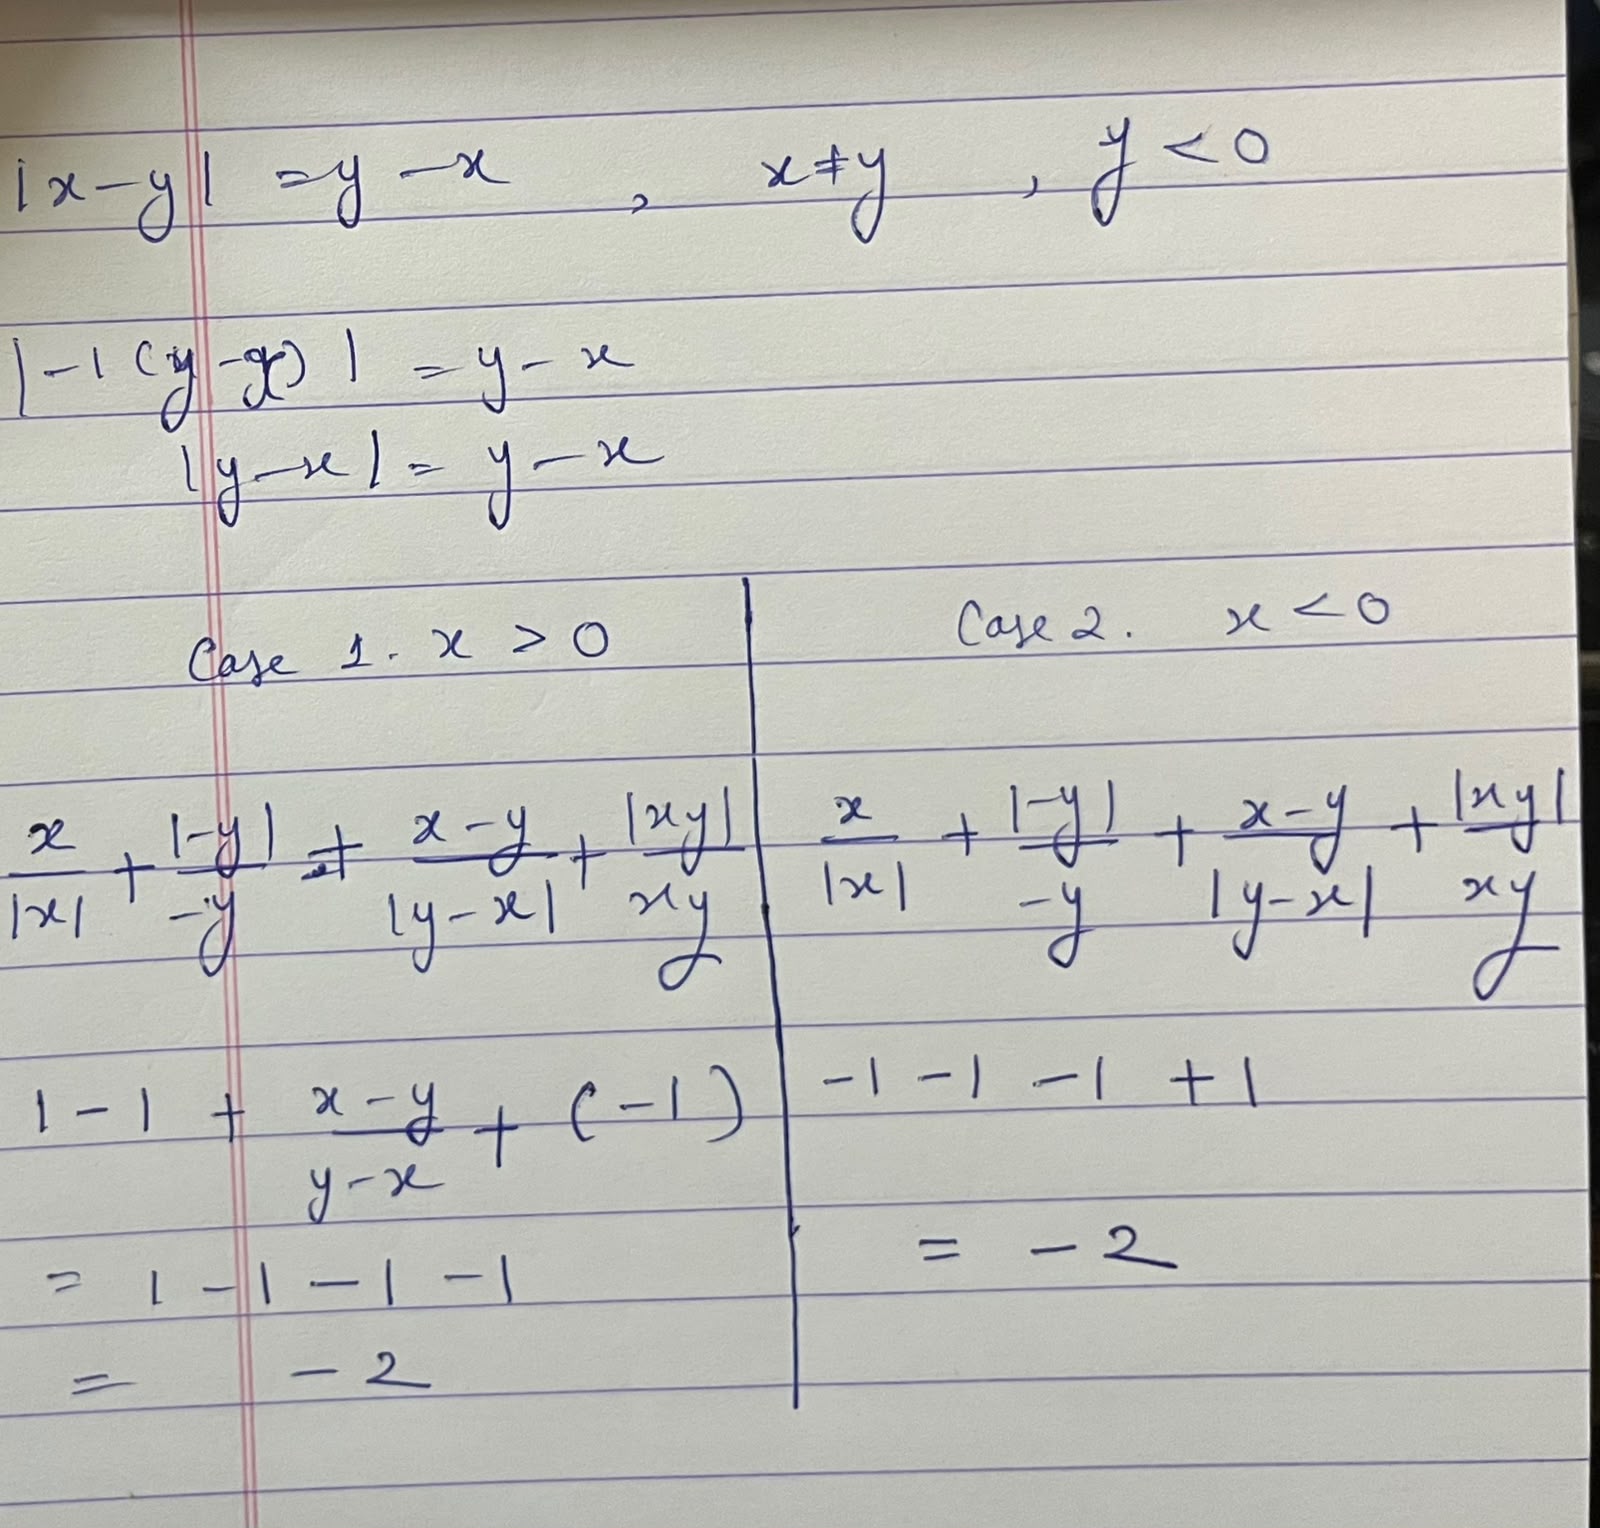 |x-y| = y-x , x≠y , y<0
|-1(y-x)| = y-x
|y-x| = y-x
Case 1. x > 0
x/|x| + |-y|/-y + x-y/|y-x| + |xy|/xy
1 - 1 + x-y/y-x + (-1)
= 1 - 1 - 1 - 1
= - 2
Case 2. x < 0
x/|x| + |-y|/-y + x-y/|y-x| + |xy|/xy
-1 -1 -1 +1
= -2